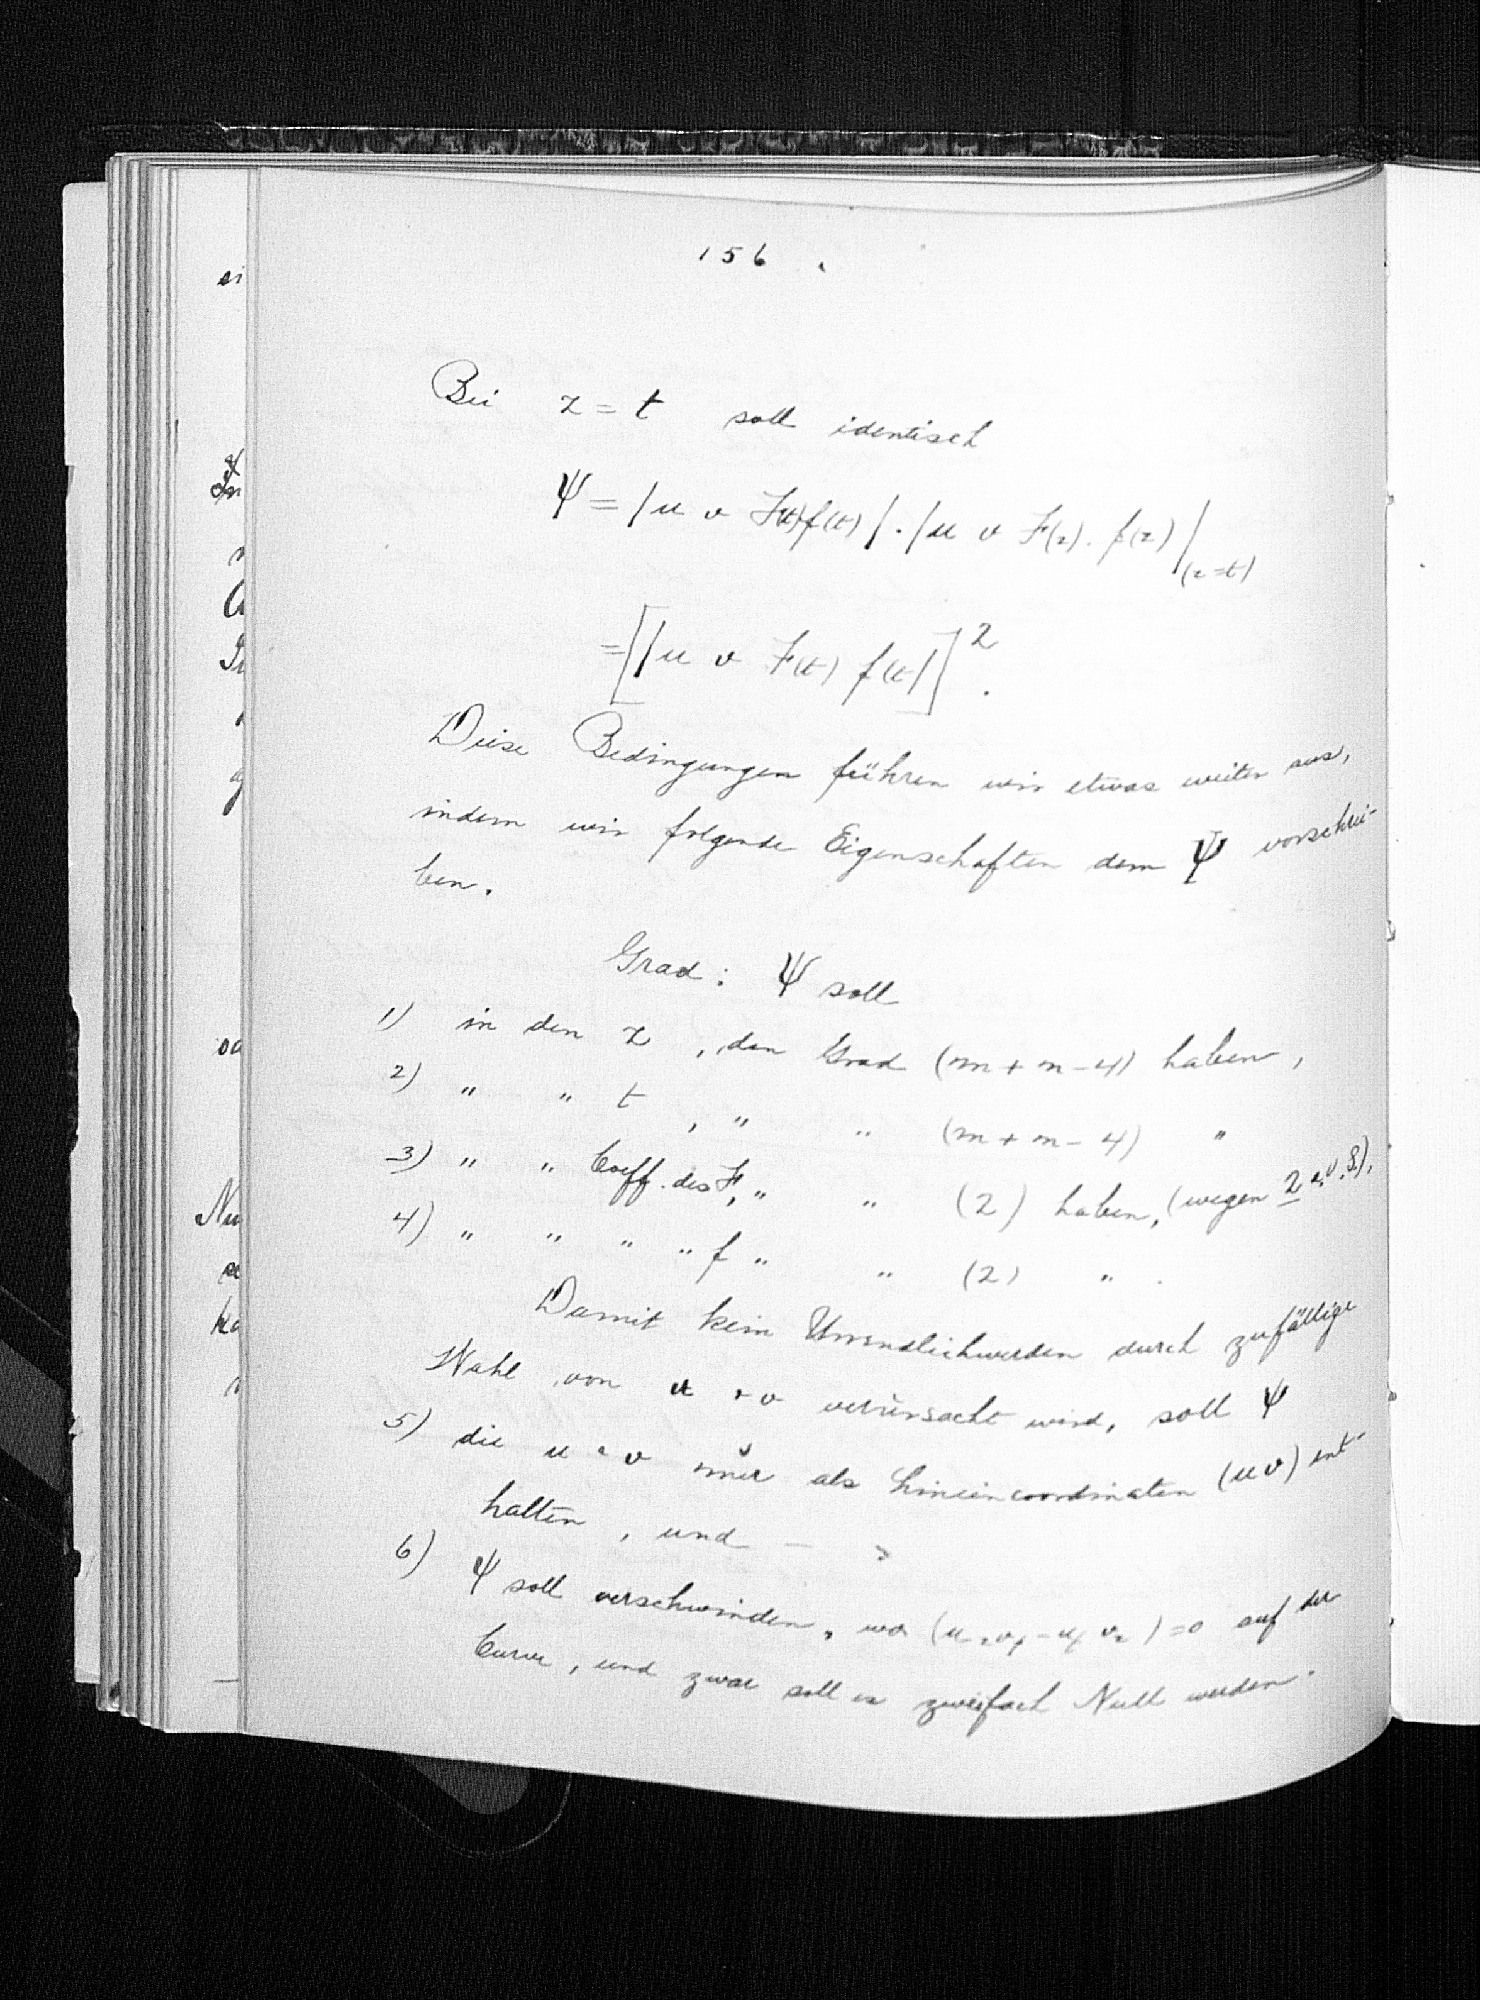 156.
Bei z = t soll identisch
Ψ = |u v F(t) f(t)| . |u v F(z) . f(z)|(z=t)
= [|u v F(t) f(t)|]².
Diese Bedingungen führen wir etwas weiter aus,
indem wir folgende Eigenschaften dem Ψ vorschrei-
ben.
Grad: Ψ soll
1) in den z, den Grad (m + n - 4) haben,
2) " " t, " " (m + n - 4) "
3) " " Coeff. des F, " " (2) haben, (wegen 2
4) " " " " f " " (2) " .
Damit kein Unendlichwerden durch zufällige
Wahl von u + v verursacht wird, soll Ψ
5) die u + v nur als Liniencoordinaten (u v) ent-
halten, und —
6) Ψ soll verschwinden, wo (u_z v_t - u_t v_z) = 0 auf der
Curve, und zwar soll es zweifach Null werden.
ei
In
oa
Nu
se
ka